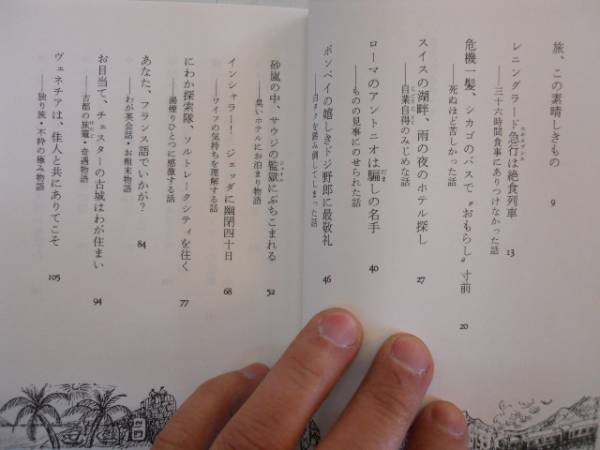 旅、この素晴しきもの
9
レニングラード急行は絶食列車
――三十六時間食事にありつけなかった話
13
危機一髪、シカゴのバスで〝おもらし〟寸前
――死ぬほど苦しかった話
20
スイスの湖畔、雨の夜のホテル探し
――自業自得のみじめな話
27
ローマのアントニオは騙しの名手
――ものの見事にのせられた話
40
ボンベイの嬉しきドジ野郎に最敬礼
46
砂嵐の中、サウジの監獄にぶちこまれる
――臭いホテルにお泊まり物語
52
インシャラー! ジェッダに幽閉四十日
――ワイフの気持ちを理解する話
68
にわか探索隊、ソルトレークシティを往く
――湯煙りひとつに感激する話
77
あなた、フランス語でいかが?
――わが英会話・お粗末物語
84
お目当て、チェスターの古城はわが住まい
――古都の旅籠・奇遇物語
94
ヴェネチアは、佳人と共にありてこそ
――独り旅・不粋の極み物語
105